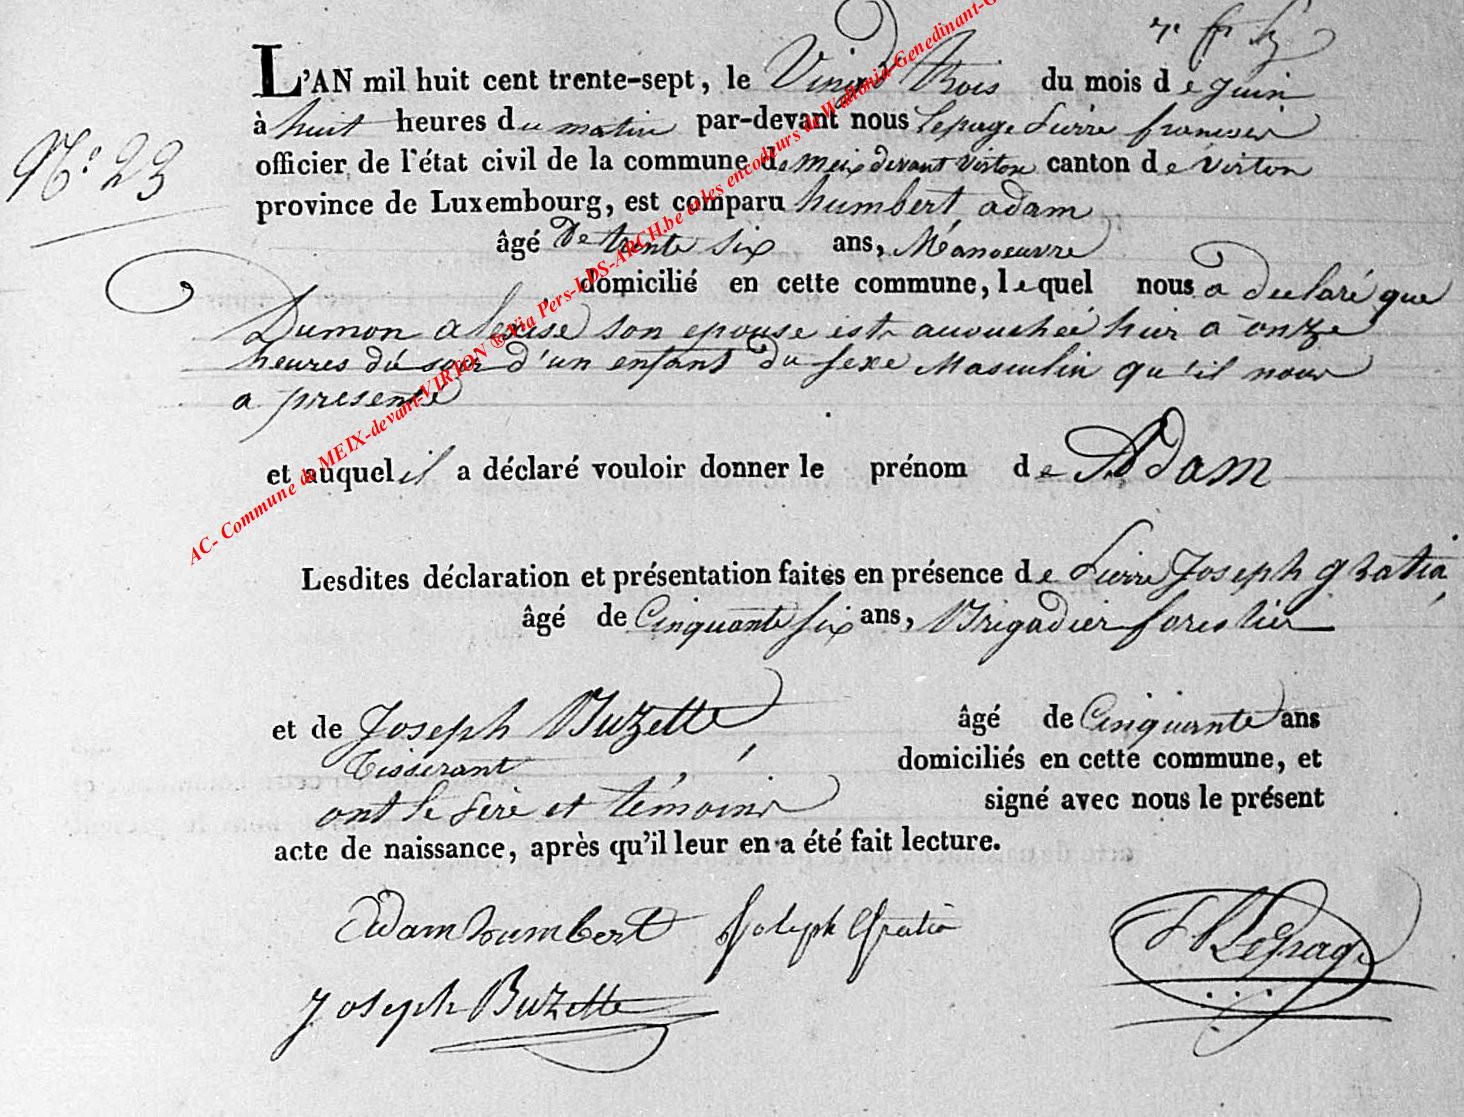 L'AN mil huit cent trente-sept, le Vingt trois du mois de juin
à huit heures du matin par-devant nous lepage pierre francois
N.° 23
officier de l'état civil de la commune de meix devant virton canton de virton
province de Luxembourg, est comparu humbert, adam
âgé de trente six ans, Manoeuvre
domicilié en cette commune, lequel nous a declaré que
Dumon alexise son epouse est accouchée hier à onze
heures du soir d'un enfant du sexe Masculin qu'il nous
a presenté
et auquel il a déclaré vouloir donner le prénom de Adam
Lesdites déclaration et présentation faites en présence de pierre Joseph gratia,
âgé de Cinquante six ans, Brigadier forestier
et de Joseph Buzette, âgé de Cinquante ans
Tisserant domiciliés en cette commune, et
ont le pere et témoins signé avec nous le présent
acte de naissance, après qu'il leur en a été fait lecture.
Adam humbert Joseph Gratia Lepage
Joseph Buzette
AC- Commune de MEIX-devant-VIRTON ® Via Pers-LDS-ARCH.be et les encodeurs de Wallonia-Genedinant-G